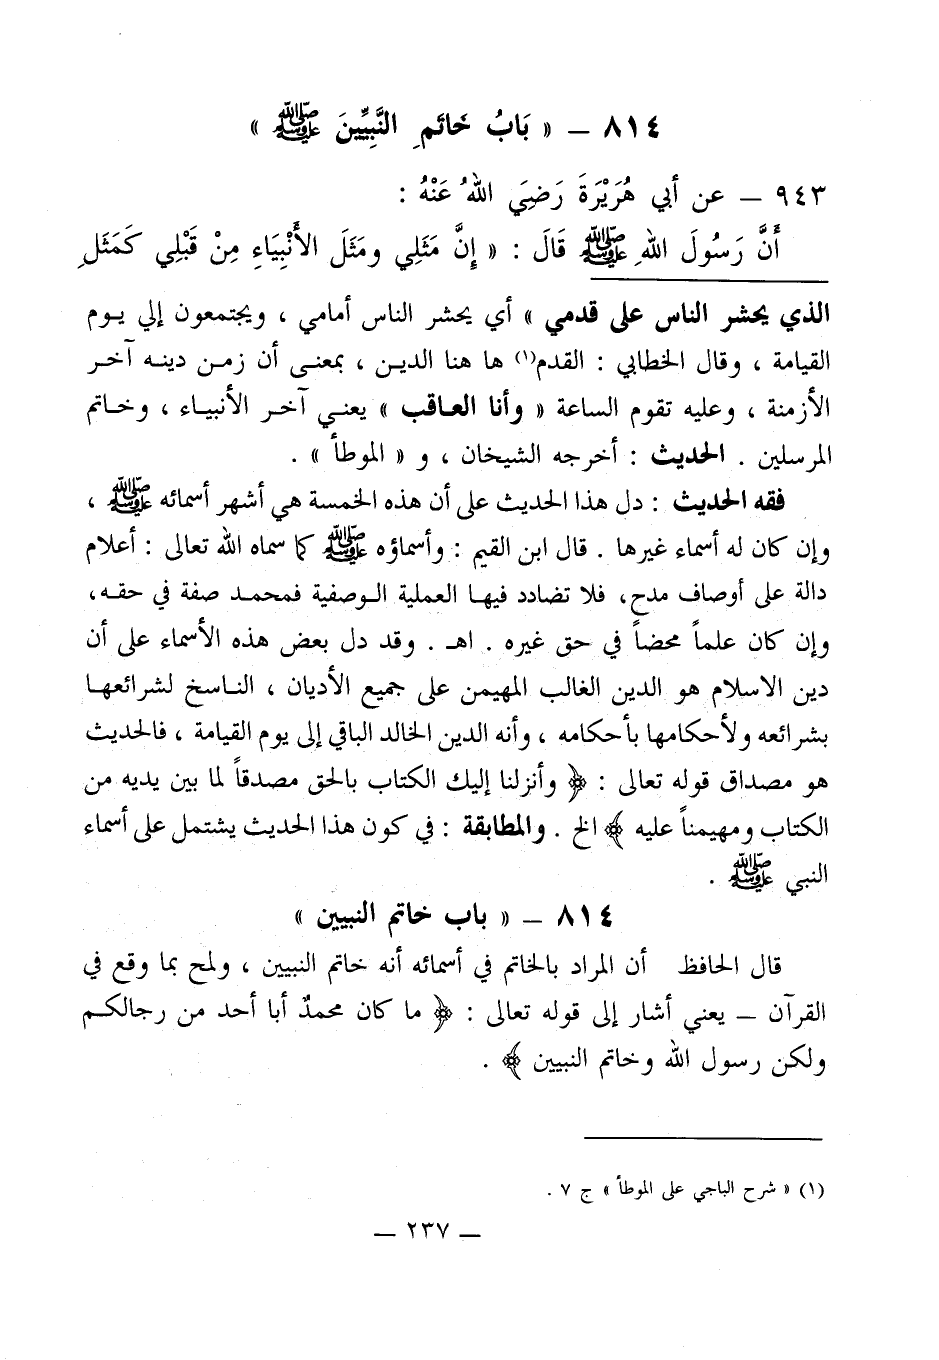 ٨١٤ – « بَابُ خَاتَمِ النَّبِيِّينَ ﷺ »
٩٤٣ – عن أبي هُرَيْرَةَ رَضِيَ اللهُ عَنْهُ :
أَنَّ رَسُولَ اللهِ ﷺ قَالَ : « إِنَّ مَثَلِي ومَثَلَ الأَنْبِيَاءِ مِنْ قَبْلِي كَمَثَلِ
الذي يحشر الناس على قدمي » أي يحشر الناس أمامي ، ويجتمعون إلي يوم
القيامة ، وقال الخطابي : القدم(١) ها هنا الدين ، بمعنى أن زمن دينه آخر
الأزمنة ، وعليه تقوم الساعة « وأنا العاقب » يعني آخر الأنبياء ، وخاتم
المرسلين . الحديث : أخرجه الشيخان ، و « الموطأ » .
فقه الحديث : دل هذا الحديث على أن هذه الخمسة هي أشهر أسمائه ﷺ ،
وإن كان له أسماء غيرها . قال ابن القيم : وأسماؤه ﷺ كما سماه الله تعالى : أعلام
دالة على أوصاف مدح، فلا تضادد فيها العملية الوصفية فمحمد صفة في حقه،
وإن كان علماً محضاً في حق غيره . اهـ . وقد دل بعض هذه الأسماء على أن
دين الاسلام هو الدين الغالب المهيمن على جميع الأديان ، الناسخ لشرائعها
بشرائعه ولأحكامها بأحكامه ، وأنه الدين الخالد الباقي إلى يوم القيامة ، فالحديث
هو مصداق قوله تعالى : ﴿ وأنزلنا إليك الكتاب بالحق مصدقاً لما بين يديه من
الكتاب ومهيمناً عليه ﴾ الخ . والمطابقة : في كون هذا الحديث يشتمل على أسماء
النبي ﷺ .
٨١٤ – « باب خاتم النبيين »
قال الحافظ أن المراد بالخاتم في أسمائه أنه خاتم النبيين ، ولمح بما وقع في
القرآن – يعني أشار إلى قوله تعالى : ﴿ ما كان محمدٌ أبا أحد من رجالكم
ولكن رسول الله وخاتم النبيين ﴾ .
(١) « شرح الباجي على الموطأ » ج ٧ .
– ٢٣٧ –